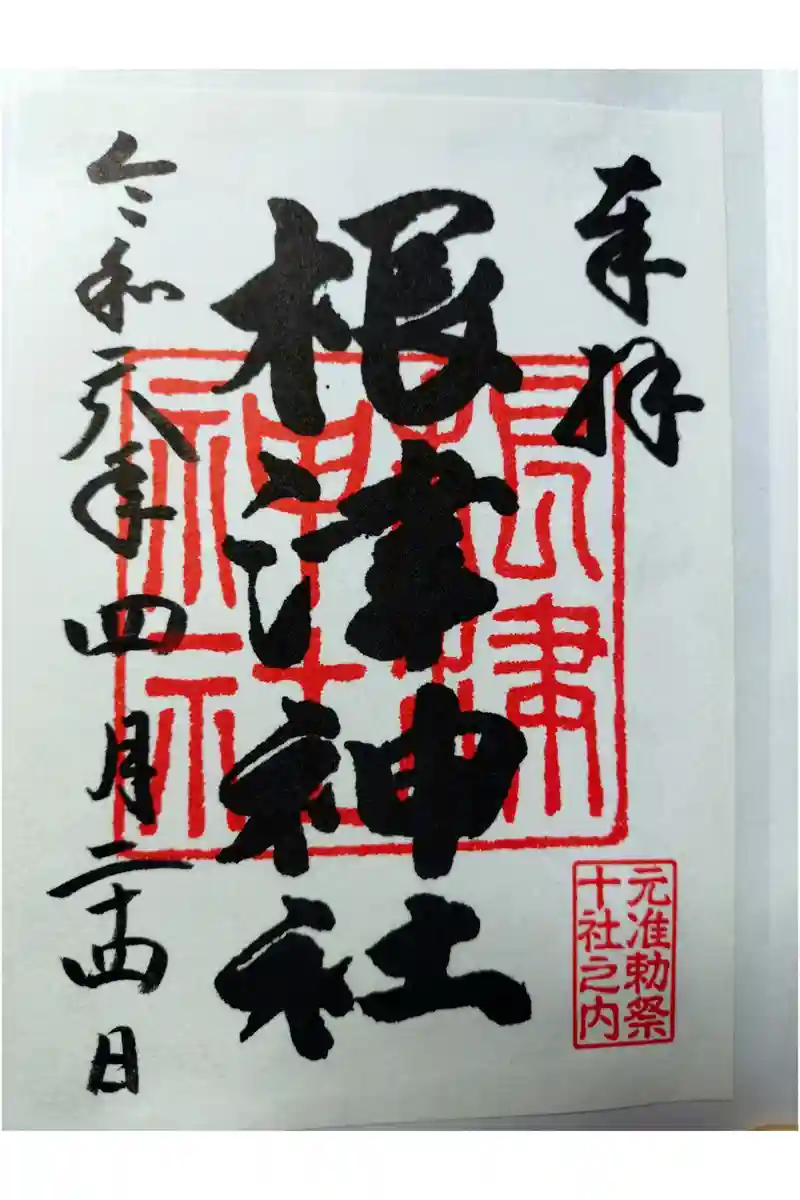 奉拝
元准勅祭
十社之内
根津神社
根津
神社
令和六年四月二十四日